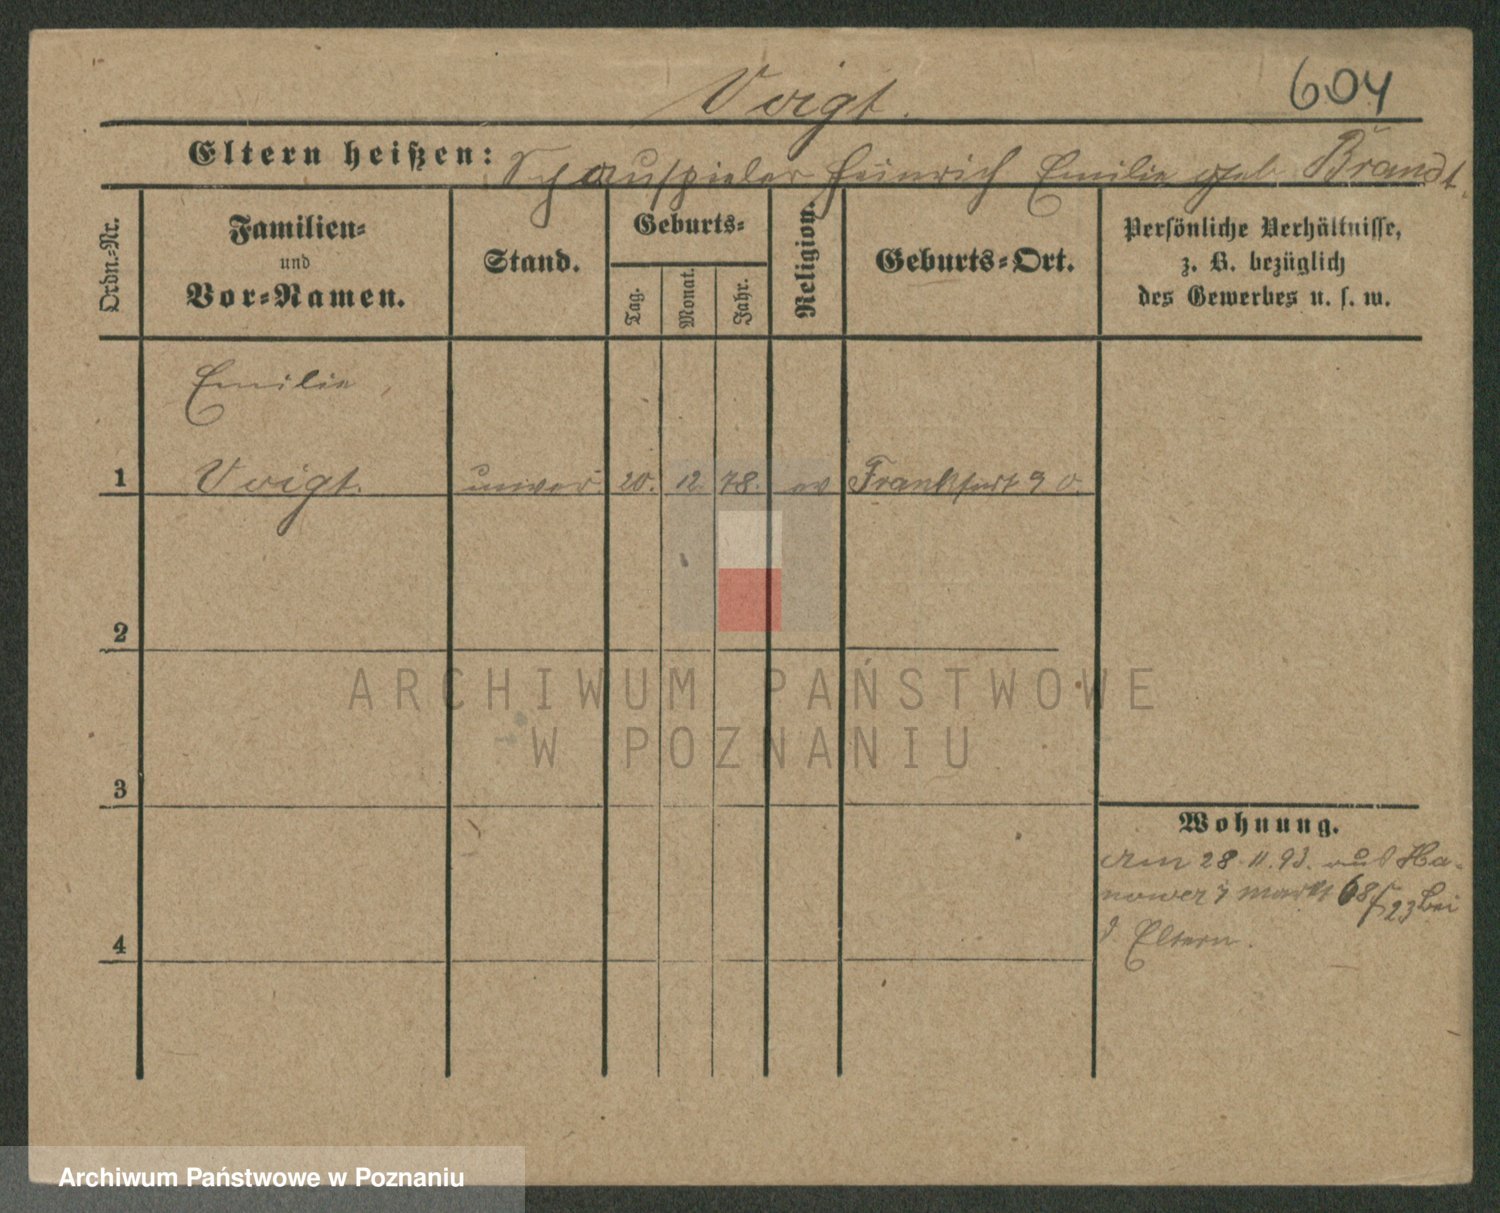 Voigt.
604
Eltern heißen: Schauspieler Heinrich Emilie geb Brandt.
Ordn.-Nr.
Familien-
und
Vor-Namen.
Stand.
Geburts-
Tag.
Monat.
Jahr.
Religion.
Geburts-Ort.
Persönliche Verhältnisse,
z. B. bezüglich
des Gewerbes u. s. w.
Emilie
1 Voigt. unver. 20. 12. 78. ev Frankfurt a O.
2
3
4
Wohnung.
Am 28 11. 93. aus Ha-
nower markt 68 23 bei
d. Eltern.
ARCHIWUM PAŃSTWOWE
W POZNANIU
Archiwum Państwowe w Poznaniu